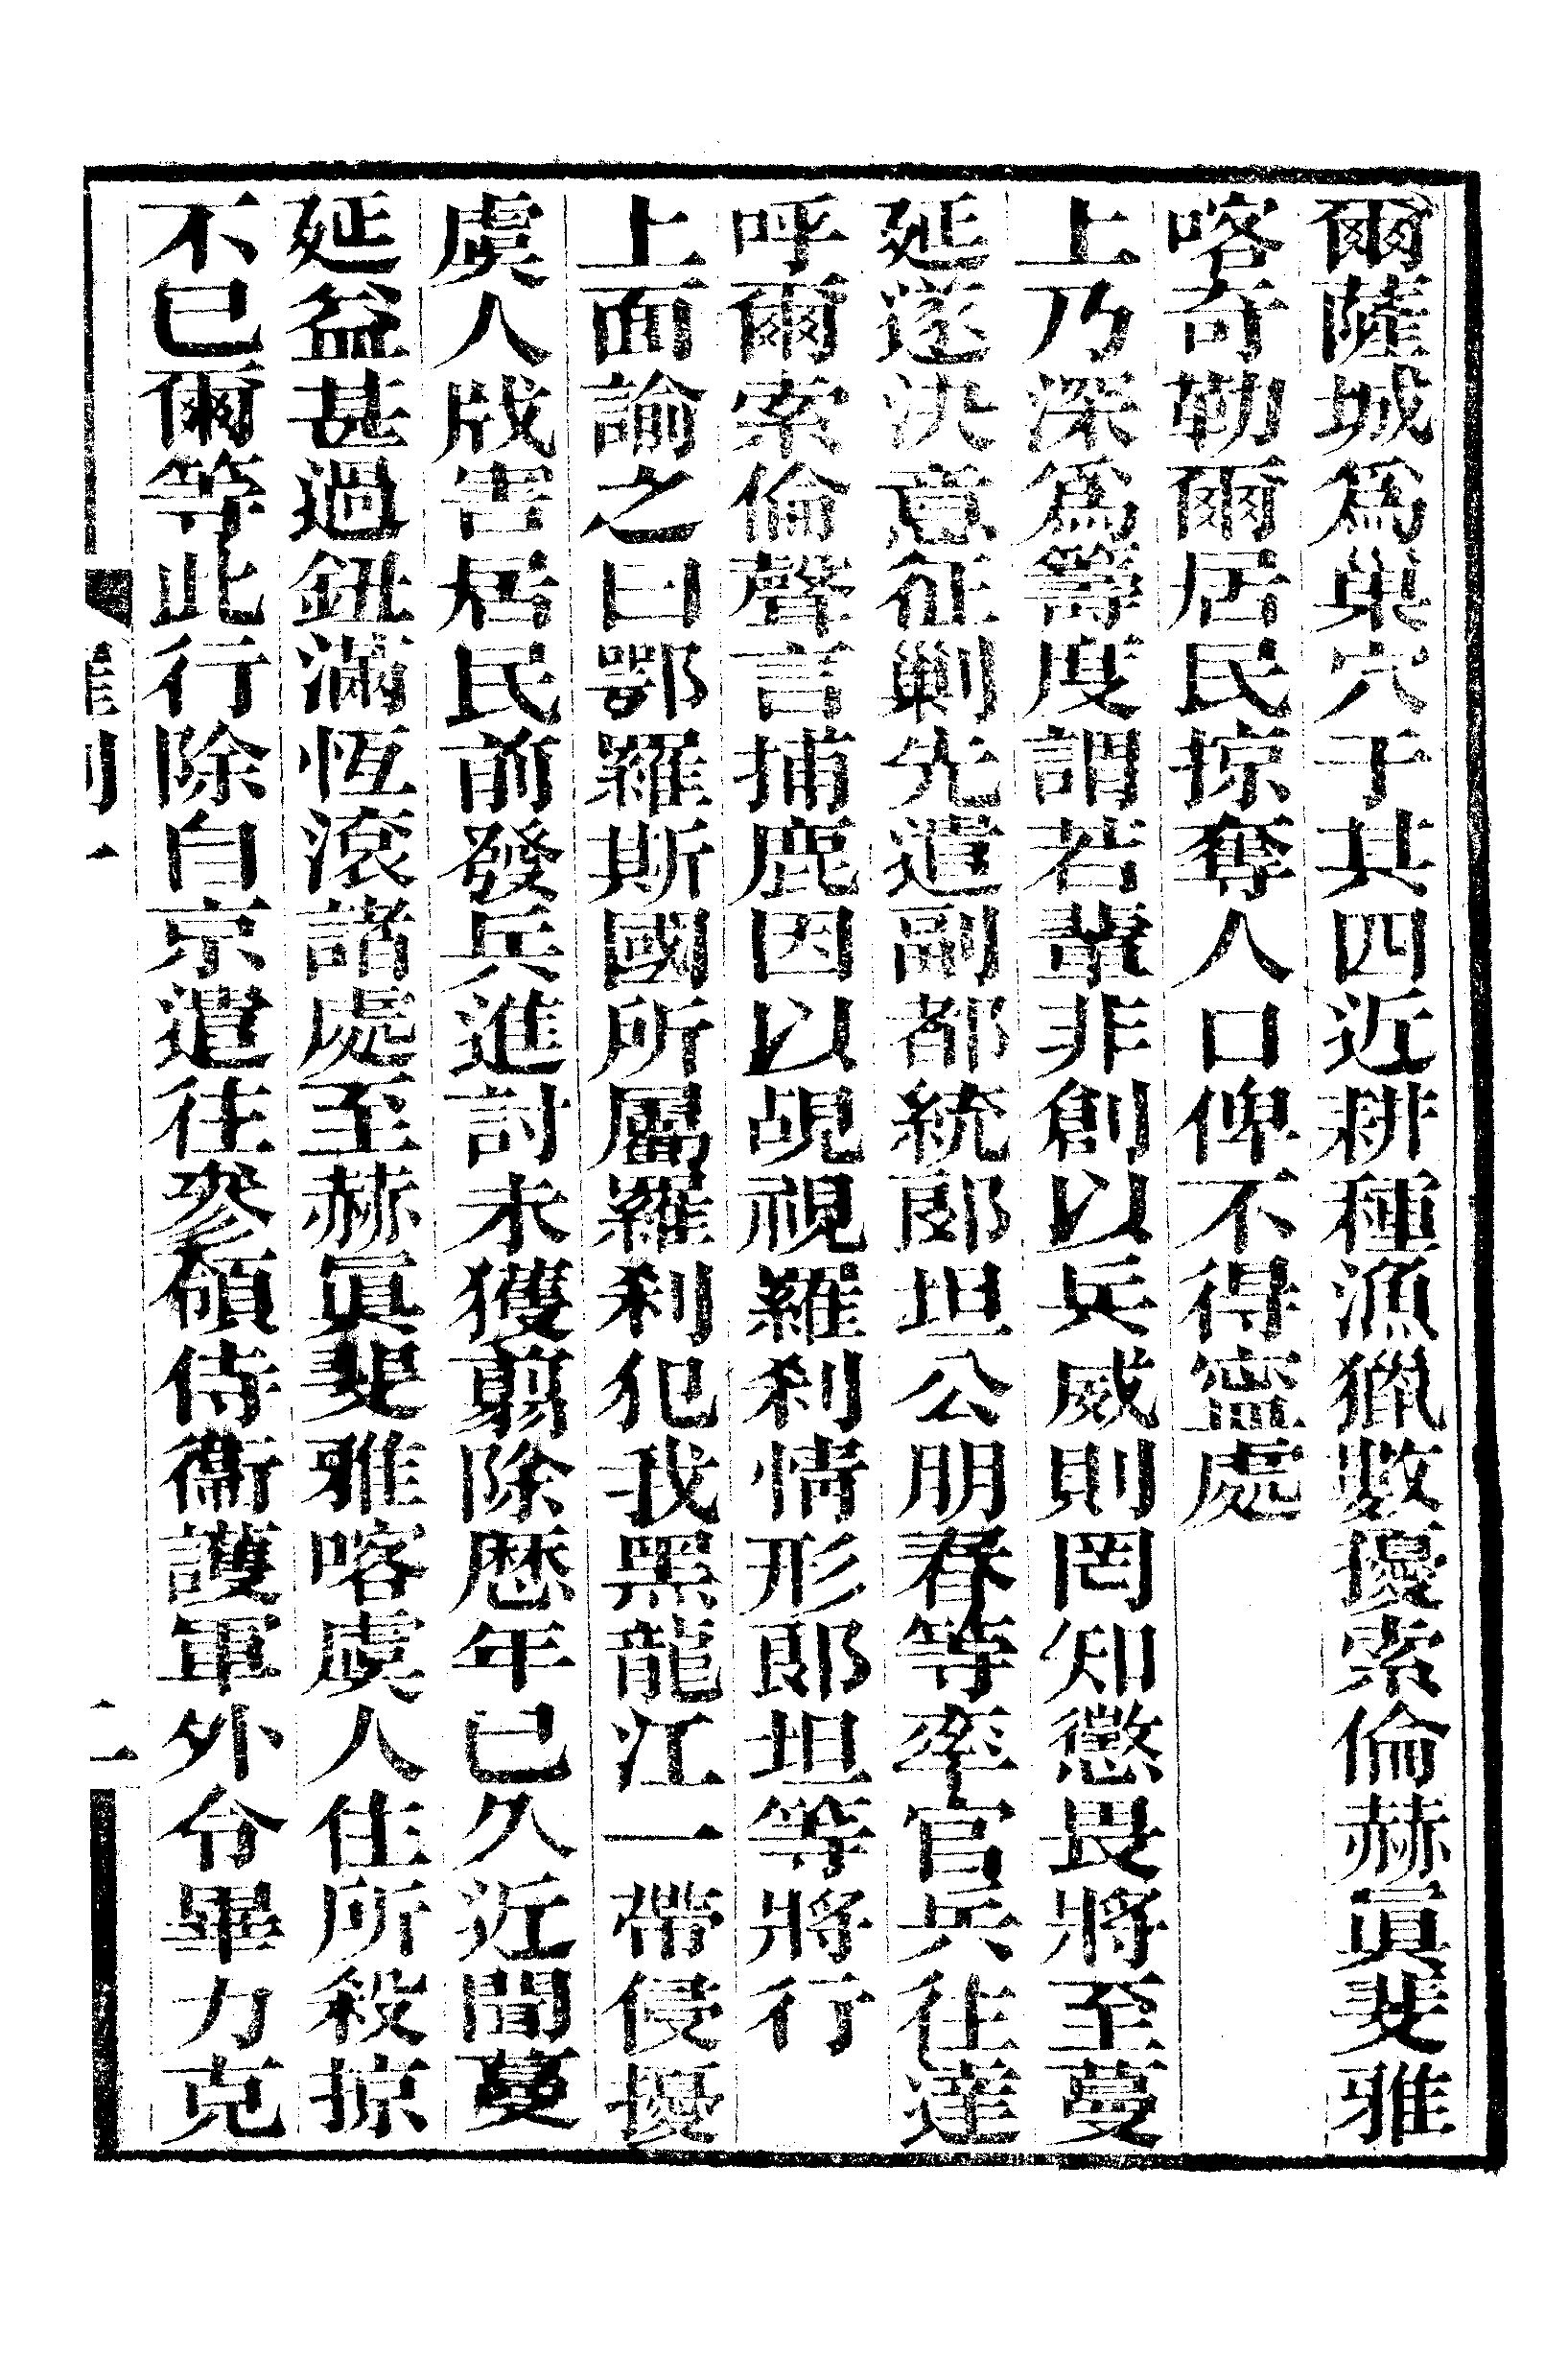 爾薩城爲巢穴于其四近耕種漁獵數擾索倫赫眞斐雅
喀奇勒爾居民掠奪人口俾不得寧處
上乃深爲籌度謂若輩非創以兵威則罔知懲畏將至蔓
延遂決意征剿先遣副都統郎坦公朋春等率官兵往達
呼爾索倫聲言捕鹿因以覘視羅刹情形郎坦等將行
上面諭之曰鄂羅斯國所屬羅刹犯我黑龍江一帶侵擾
虞人戕害居民前發兵進討未獲翦除歷年已久近聞蔓
延益甚過鈕滿恆滾諸處至赫眞斐雅喀虞人住所殺掠
不已爾等此行除自京遣往參領侍衞護軍外令畢力克
二